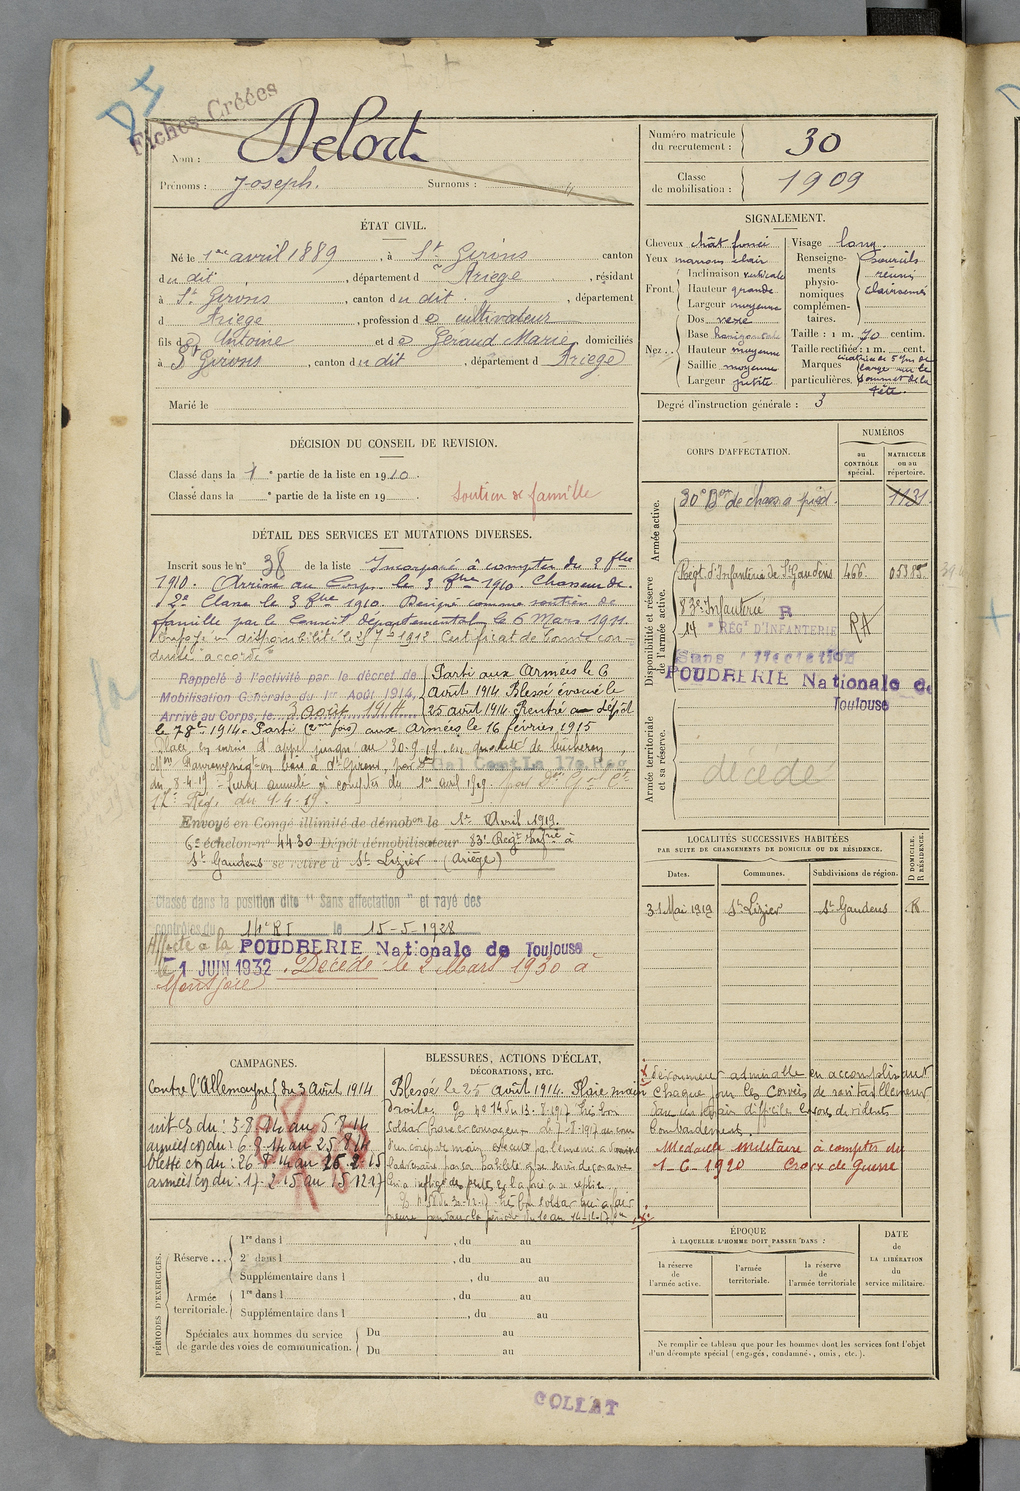 DI
Fiches Créées
Nom : Delort
Prénoms : Joseph. Surnoms : "
Numéro matricule du recrutement : 30
Classe de mobilisation : 1909
ÉTAT CIVIL.
Né le 1er avril 1889, à St Girons canton
du dit, département d Ariège, résidant
à St Girons, canton du dit, département
d Ariège, profession de cultivateur
fils de Antoine et de Géraud Marie domiciliés
à St Girons, canton du dit, département d Ariège
Marié le
SIGNALEMENT.
Cheveux chât foncé
Yeux marrons clair
Front. Inclinaison verticale
Hauteur grande
Largeur moyenne
Nez.. Dos vexe
Base horizontale
Hauteur moyenne
Saillie moyenne
Largeur petite
Visage long.
Renseignements physionomiques complémentaires. sourcils réunis clairsemés
Taille : 1 m. 70 centim.
Taille rectifiée : 1 m. cent.
Marques particulières. cicatrice de 5 large sur le sommet de la tête.
Degré d'instruction générale : 3
DÉCISION DU CONSEIL DE REVISION.
Classé dans la 1e partie de la liste en 1910.
Classé dans la e partie de la liste en 19
Soutien de famille
DÉTAIL DES SERVICES ET MUTATIONS DIVERSES.
Inscrit sous le n° 38 de la liste Incorporé à compter du 3 8bre
1910. Arrivé au Corps le 3 8bre 1910. Chasseur de
2e Classe le 3 8bre 1910. Désigné comme soutien de
famille par le Conseil départemental le 6 Mars 1911.
Envoyé en disponibilité le 1912. Certificat de bonne con-
duite accordé
Rappelé à l'activité par le décret de
Mobilisation Générale du 1er Août 1914.
Arrivé au Corps, le 3 août 1914
Parti aux Armées le 6
Août 1914. Blessé évacué le
25 août 1914. Rentré au dépôt
le 7 8bre 1914. Parti (2me fois) aux armées le 16 février 1915
Placé en sursis d'appel jusqu'au 30-9-19 en qualité de bûcheron
bois à St Girons, par
Gal Comt La 17e Rég
du 8-4-19 - Sursis annulé à compter du 1er avril 1919
17e Rég. du 9-4-19.
Envoyé en Congé illimité de démobon le 1er Avril 1919.
6e échelon n° 4430 Dépôt démobilisateur 83e Regt Infrie à
St Gaudens se retire à St Lizier (Ariège)
Classé dans la position dite "Sans affectation" et rayé des
contrôles du 14e RI le 15-5-1928
Affecté à la POUDRERIE Nationale de Toulouse
le 1 JUIN 1932. Décédé le 2 Mars 1930 à
Montjoie
CORPS D'AFFECTATION.
NUMÉROS
au CONTRÔLE spécial.
MATRICULE ou au répertoire.
Armée active.
30e Bon de chass à pied. 1131
Disponibilité et réserve de l'armée active.
Régt d'Infanterie de St Gaudens 466 05385
83e Infanterie R
14 e RÉGt D'INFANTERIE RA
Sans affectation
POUDRERIE Nationale de
Toulouse
Armée territoriale et sa réserve.
décédé
LOCALITÉS SUCCESSIVES HABITÉES
PAR SUITE DE CHANGEMENTS DE DOMICILE OU DE RÉSIDENCE.
Dates. Communes. Subdivisions de région. D DOMICILE. R RÉSIDENCE.
31 Mai 1919 St Lizier St Gaudens R
CAMPAGNES.
Contre l'Allemagne du 3 Août 1914
int CS du : 3-8-14 au 5-8-14
armées CD du : 6-8-14 au 25-8-14
blessé CD du : 26-8-14 au 15-2-15
BLESSURES, ACTIONS D'ÉCLAT,
DÉCORATIONS, ETC.
Blessé le 25 août 1914. Plaie main
droite. n° 14 du 13-8-1917 très bon
soldat brave et courageux
d'un coup de main exécuté par l'ennemi
dévouement admirable en accomplissant
chaque jour les corvées de ravitaillement
dans un terrain difficile
bombardement.
Médaille militaire à compter du
1-6-1920 Croix de Guerre
PÉRIODES D'EXERCICES.
Réserve... 1re dans l , du au
2e dans l , du au
Supplémentaire dans l , du au
Armée territoriale. 1re dans l , du au
Supplémentaire dans l , du au
Spéciales aux hommes du service de garde des voies de communication. Du au
Du au
ÉPOQUE
À LAQUELLE L'HOMME DOIT PASSER DANS :
la réserve de l'armée active.
l'armée territoriale.
la réserve de l'armée territoriale
DATE de LA LIBÉRATION du service militaire.
Ne remplir ce tableau que pour les hommes dont les services font l'objet
d'un décompte spécial (engagés, condamnés, omis, etc.).
COLLAT